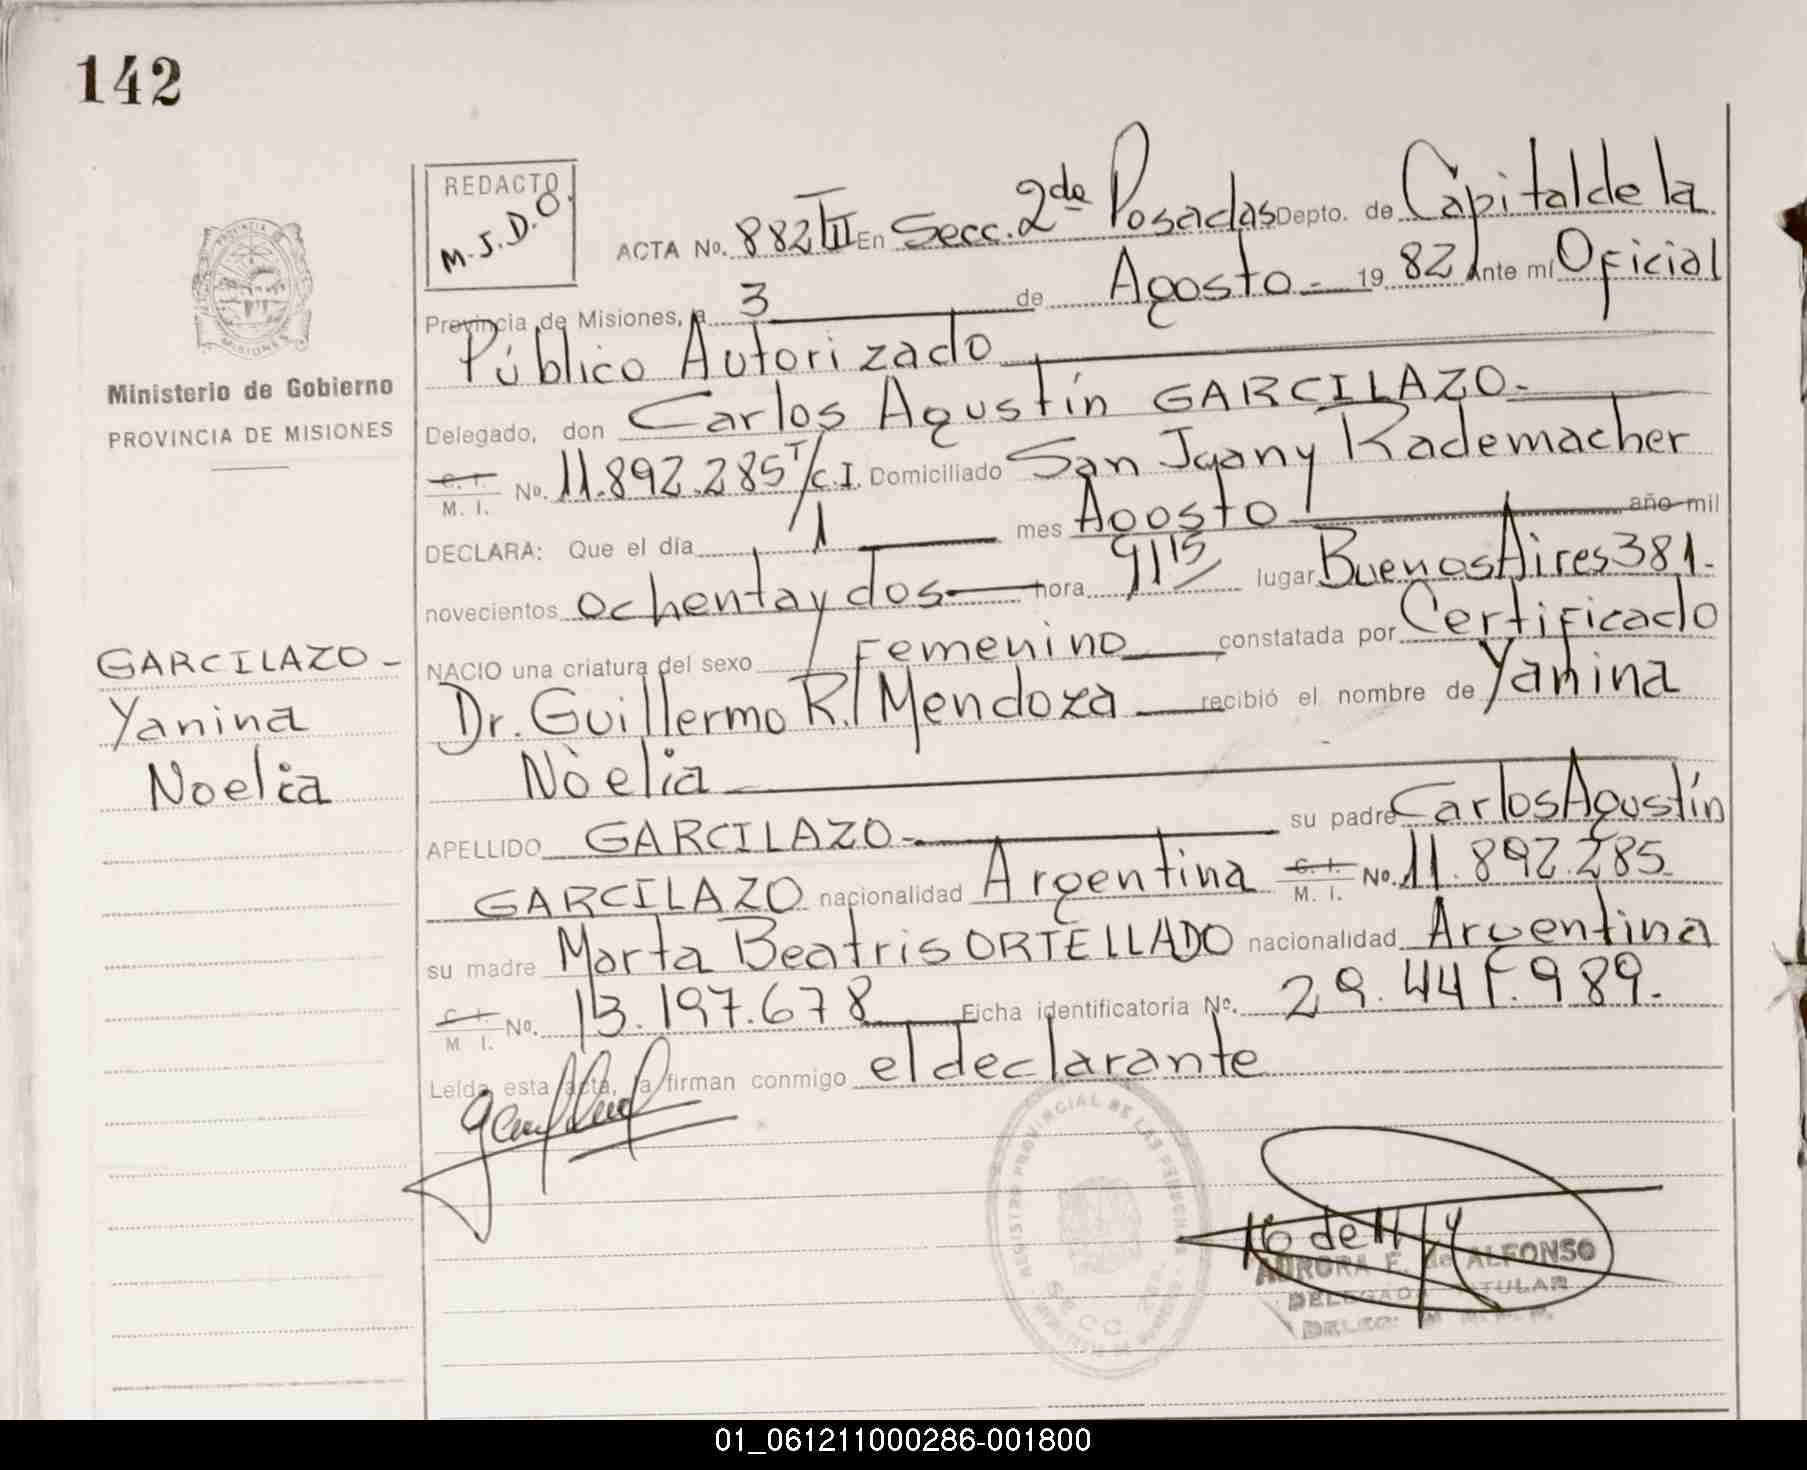 142
REDACTO
M.J.D.O.
ACTA No. 882 TIII En Secc. 2da Posadas Depto. de Capital de la
Provincia de Misiones, a 3 de Agosto 1982 Ante mí Oficial
Público Autorizado
Delegado, don Carlos Agustín GARCILAZO-
C. I. M. I. No. 11.892.285 T/C.I. Domiciliado San Juan y Rademacher
DECLARA: Que el día 1 mes Agosto año mil
novecientos ochenta y dos hora 9 15 lugar Buenos Aires 381-
NACIO una criatura del sexo Femenino constatada por Certificado
Dr. Guillermo R. Mendoza recibió el nombre de Yanina
Noelia
APELLIDO GARCILAZO- su padre Carlos Agustín
GARCILAZO nacionalidad Argentina C. I. M. I. No. 11.892.285
su madre Marta Beatris ORTELLADO nacionalidad Argentina
C. I. M I. No. 13.197.678 Ficha identificatoria No. 29.441.989.
Leída esta acta, la firman conmigo el declarante
PROVINCIA DE
MISIONES
Ministerio de Gobierno
PROVINCIA DE MISIONES
GARCILAZO-
Yanina
Noelia
REGISTRO PROVINCIAL DE LAS PERSONAS
SECC
16 de
AURORA E. de ALFONSO
DELEGADA TITULAR
01_061211000286-001800